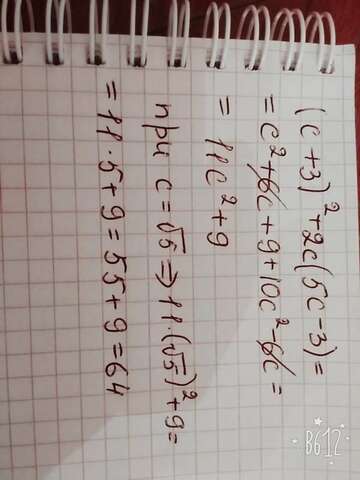 (c+3)²+2c(5c-3)=
=c²+6c+9+10c²-6c=
=11c²+9
при c=√5 ⇒ 11·(√5)²+9=
=11·5+9=55+9=64
B612